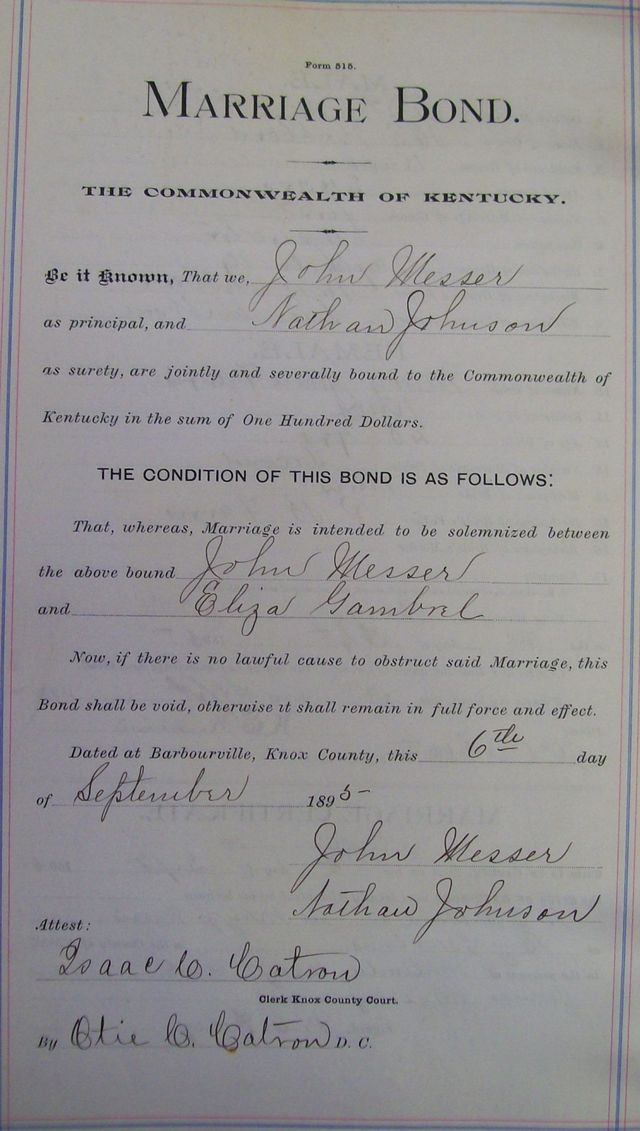 Form 515.
MARRIAGE BOND.
THE COMMONWEALTH OF KENTUCKY.
Be it Known, That we, John Messer
as principal, and Nathan Johnson
as surety, are jointly and severally bound to the Commonwealth of
Kentucky in the sum of One Hundred Dollars.
THE CONDITION OF THIS BOND IS AS FOLLOWS:
That, whereas, Marriage is intended to be solemnized between
the above bound John Messer
and Eliza Gambrel
Now, if there is no lawful cause to obstruct said Marriage, this
Bond shall be void, otherwise it shall remain in full force and effect.
Dated at Barbourville, Knox County, this 6th day
of September 1895
John Messer
Nathan Johnson
Attest:
Isaac C. Catron
Clerk Knox County Court.
By Otie C. Catron D. C.